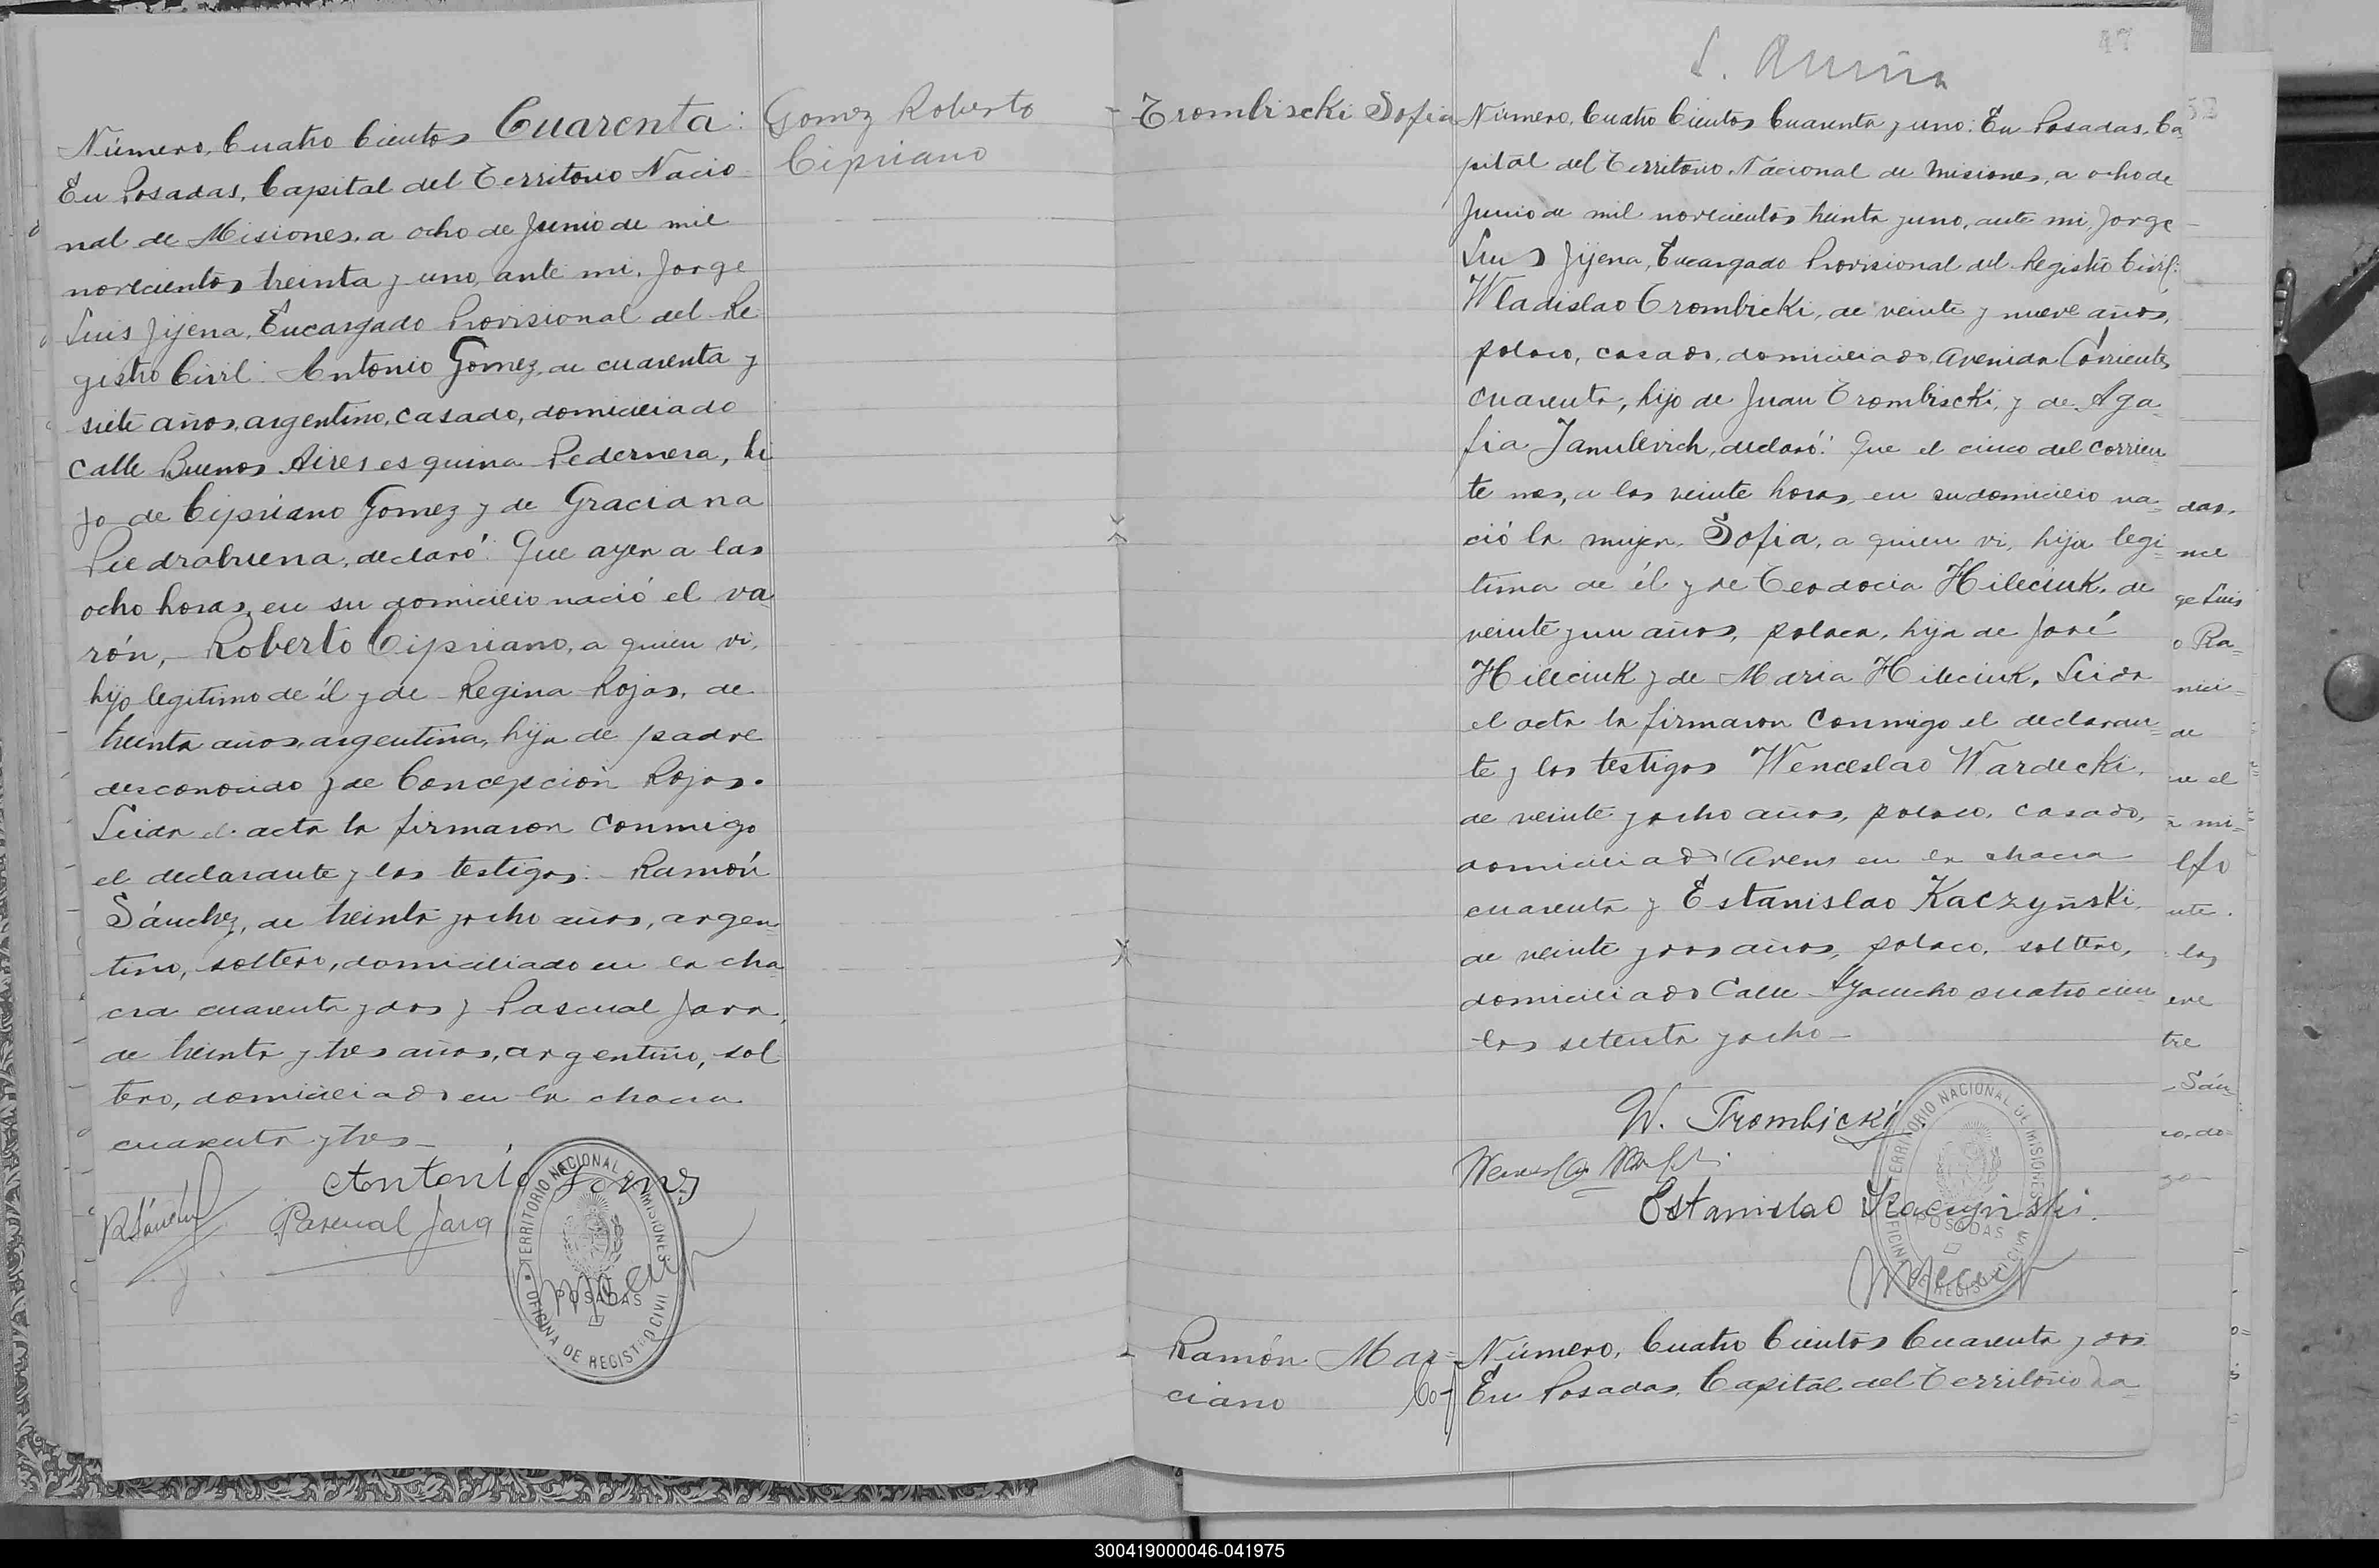 Número, Cuatro Cientos Cuarenta:
En Posadas, Capital del Territorio Nacio
nal de Misiones, a ocho de Junio de mil
novecientos treinta y uno, ante mi, Jorge
Luis Jijena, Encargado Provisional del Re
gistro Civil: Antonio Gomez, de cuarenta y
siete años, argentino, casado, domiciliado
calle Buenos Aires esquina Pedernera, hi
jo de Cipriano Gomez y de Graciana
Piedrabuena, declaró: Que ayer a las
ocho horas, en su domicilio nació el va
rón, Roberto Cipriano, a quien vi,
hijo legitimo de él y de Regina Rojas, de
treinta años, argentina, hija de padre
desconocido y de Concepción Rojas.
Leida el acta la firmaron conmigo
el declarante y los testigos: Ramón
Sánchez, de treinta y ocho años, argen=
tino, soltero, domiciliado en la cha
cra cuarenta y dos y Pascual Jara,
de treinta y tres años, argentino, sol
tero, domiciliado en la chacra
cuarenta y tres—
Antonio Gomez
R Sánchez
Pascual Jara
TERRITORIO NACIONAL DE MISIONES
POSADAS
OFICINA DE REGISTRO CIVIL
Gomez Roberto
Cipriano
47
Trombiscki Sofia
Número, Cuatro Cientos Cuarenta y uno: En Posadas, Ca
pital del Territorio Nacional de Misiones, a ocho de
Junio de mil novecientos treinta y uno, ante mi, Jorge
Luis Jijena, Encargado Provisional del Registro Civil:
Wladislao Trombicki, de veinte y nueve años,
polaco, casado, domiciliado Avenida Corrientes
cuarenta, hijo de Juan Trombiscki, y de Aga
fia Janulevich, declaró: Que el cinco del corrien
te mes, a las veinte horas, en su domicilio na=
ció la mujer, Sofia, a quien vi, hija legi=
tima de él y de Teodocia Hileciuk, de
veinte y un años, polaca, hija de José
Hileciuk y de Maria Hileciuk, Leida
el acta la firmaron conmigo el declaran=
te y los testigos Wenceslao Wardecki,
de veinte y ocho años, polaco, casado,
domiciliado en la chacra
cuarenta y Estanislao Kaczyñski,
de veinte y dos años, polaco, soltero,
domiciliado Calle Ayacucho cuatro cien
tos setenta y ocho—
W. Trombicki
Estanislao Kaczyński
TERRITORIO NACIONAL DE MISIONES
POSADAS
OFICINA DE REGISTRO CIVIL
Ramón Mar=
ciano
Número, Cuatro Cientos Cuarenta y dos
En Posadas, Capital del Territorio Na=
das,
mil
ge Luis
o Ra=
nici=
de
en el
mi=
los
tre
Sán=
300419000046-041975